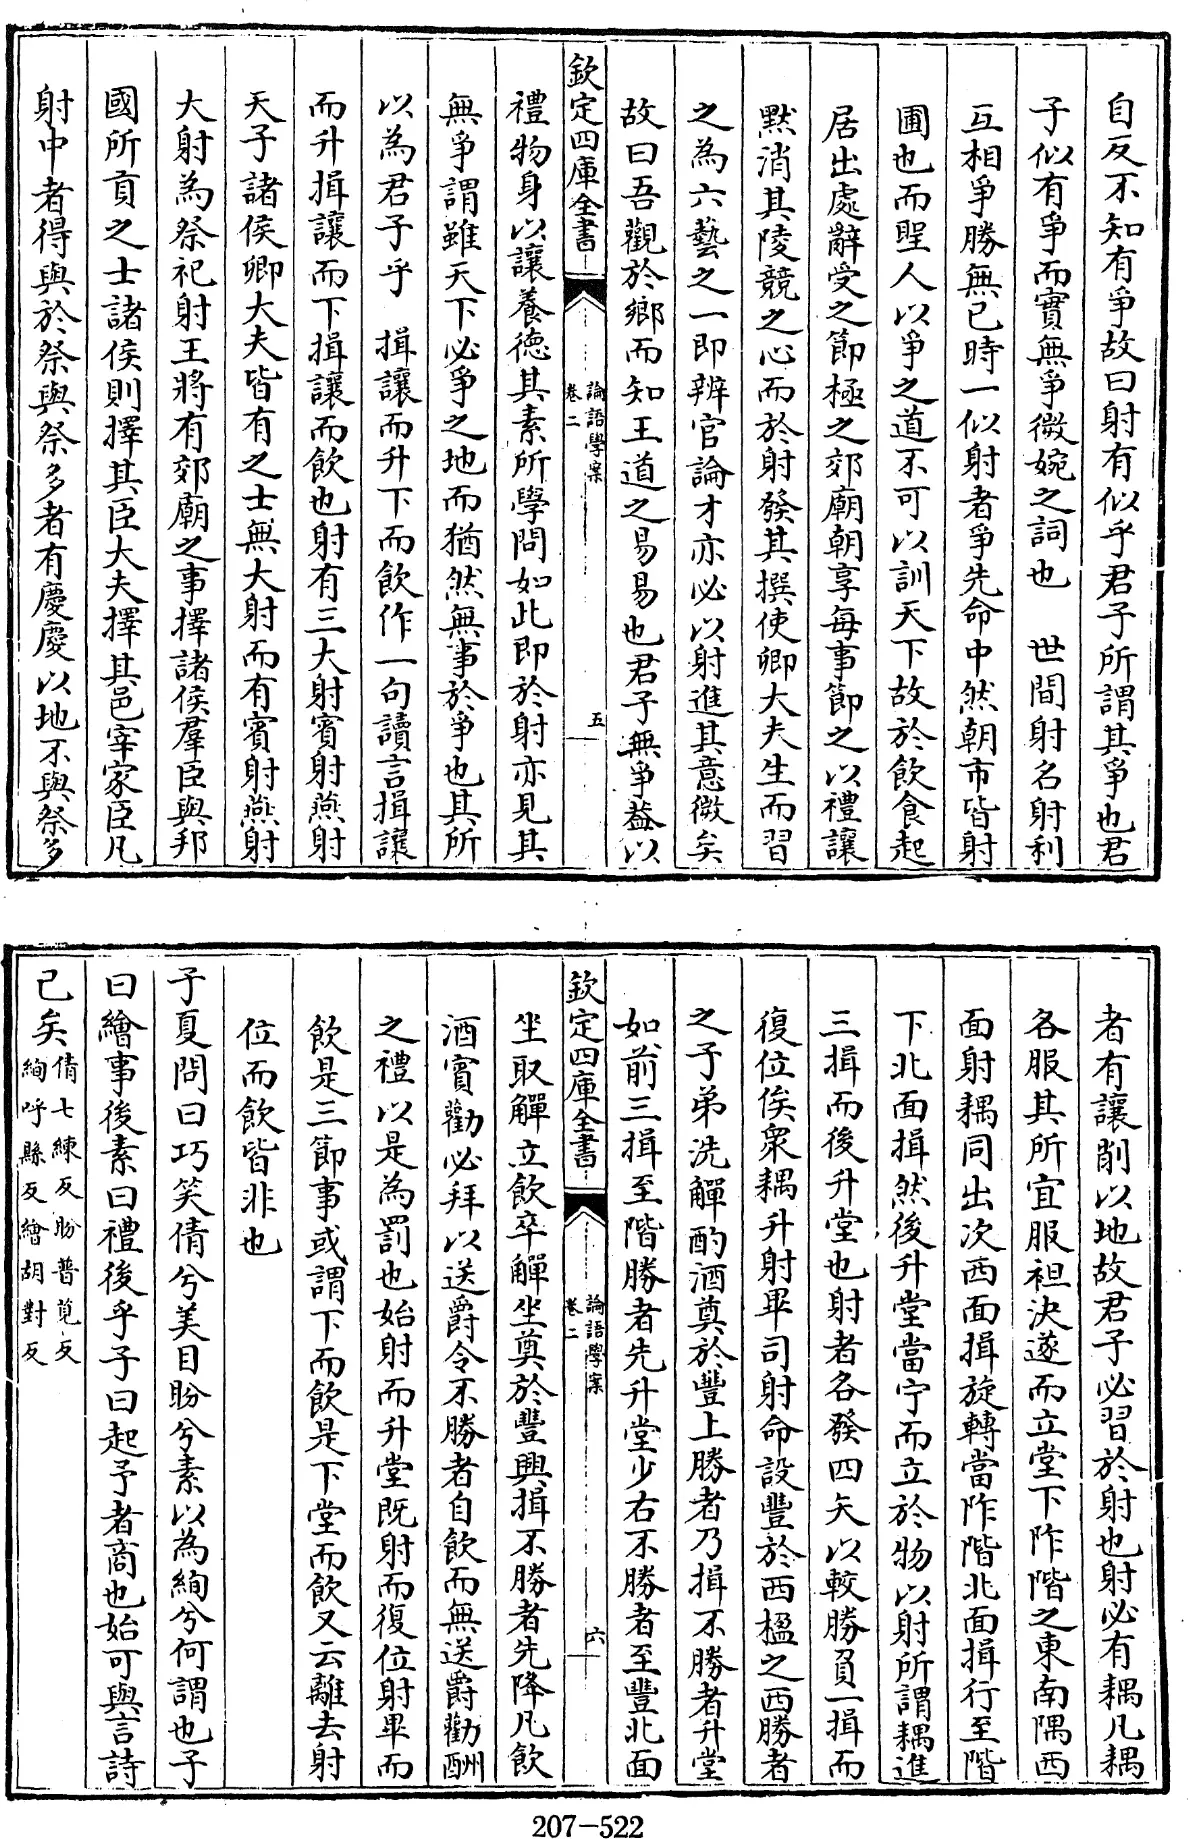 自反不知有爭故曰射有似乎君子所謂其爭也君
子似有爭而實無爭微婉之詞也　世間射名射利
互相爭勝無已時一似射者爭先命中然朝市皆射
圃也而聖人以爭之道不可以訓天下故於飲食起
居出處辭受之節極之郊廟朝享每事節之以禮讓
黙消其陵競之心而於射發其撰使卿大夫生而習
之為六藝之一即辨官論才亦必以射進其意微矣
故曰吾觀於鄉而知王道之易易也君子無爭葢以
欽定四庫全書
論語學案
卷二
五
禮物身以讓養德其素所學問如此即於射亦見其
無爭謂雖天下必爭之地而猶然無事於爭也其所
以為君子乎　揖讓而升下而飲作一句讀言揖讓
而升揖讓而下揖讓而飲也射有三大射賓射燕射
天子諸侯卿大夫皆有之士無大射而有賓射燕射
大射為祭祀射王將有郊廟之事擇諸侯羣臣與邦
國所貢之士諸侯則擇其臣大夫擇其邑宰家臣凡
射中者得與於祭與祭多者有慶慶以地不與祭多
者有讓削以地故君子必習於射也射必有耦凡耦
各服其所宜服袒決遂而立堂下阼階之東南隅西
面射耦同出次西面揖旋轉當阼階北面揖行至階
下北面揖然後升堂當宁而立於物以射所謂耦進
三揖而後升堂也射者各發四矢以較勝負一揖而
復位俟衆耦升射畢司射命設豐於西楹之西勝者
之子弟洗觶酌酒奠於豐上勝者乃揖不勝者升堂
如前三揖至階勝者先升堂少右不勝者至豐北面
欽定四庫全書
論語學案
卷二
六
坐取觶立飲卒觶坐奠於豐興揖不勝者先降凡飲
酒賓勸必拜以送爵令不勝者自飲而無送爵勸酬
之禮以是為罰也始射而升堂既射而復位射畢而
飲是三節事或謂下而飲是下堂而飲又云離去射
位而飲皆非也
子夏問曰巧笑倩兮美目盼兮素以為絢兮何謂也子
曰繪事後素曰禮後乎子曰起予者商也始可與言詩
已矣倩七練反盼普莧反
絢呼縣反繪胡對反
207-522